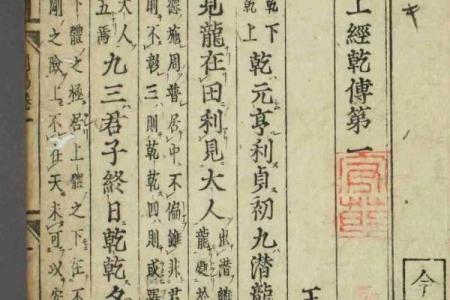 今
上經乾傳第一
王
乾下
乾上
乾元亨利貞初九潜龍
見龍在田利見大人
出潜離
龍處於
德施周普居中不偏雖非君
則不彰三則乾乾四則或
大人
五焉
九三君子終日乾乾夕
下體之極居上體之下在不
剛之險上不在天未可以安